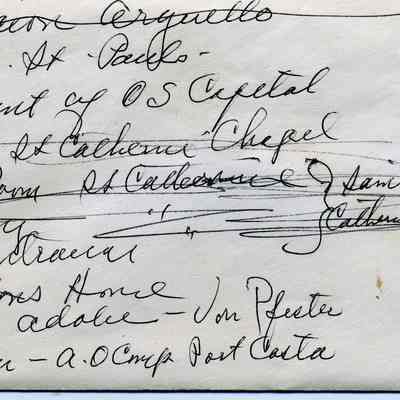 Arguello
. St. Pauls -
ent of O S Capital
St Catherine Chapel
Room St Catherine } Sain
Catherin
ons Home
adobe - Von Pfister
- A.O Comp. Port Costa